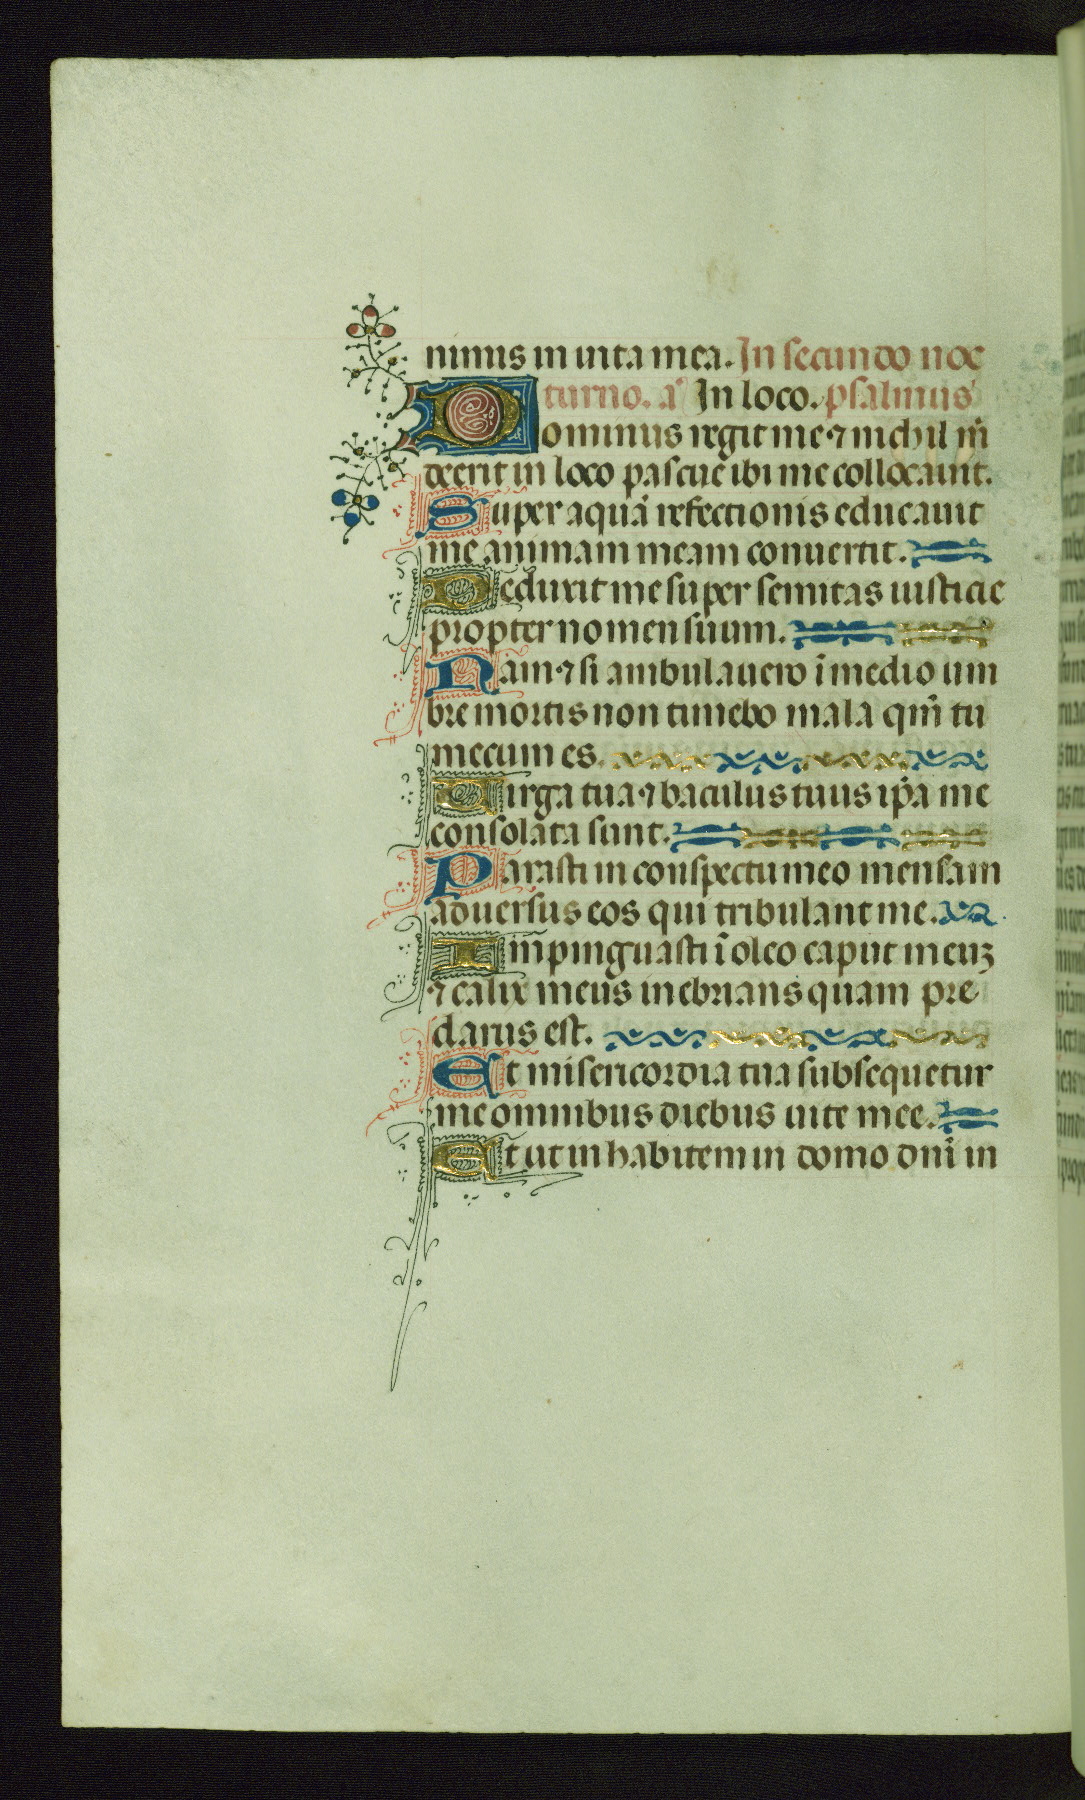 nimus in uita mea. In secundo noc
turno. añ In loco. psalmus
Dominus regit me ⁊ nichil m̃
deerit in loco pascue ibi me collocauit.
Super aquã refectionis educauit
me animam meam conuertit.
Deduxit me super semitas iusticie
propter nomen suum.
Nam ⁊ si ambulauero ĩ medio um
bre mortis non timebo mala qm̃ tu
mecum es.
Uirga tua ⁊ baculus tuus ip̃a me
consolata sunt.
Parasti in conspectu meo mensam
aduersus eos qui tribulant me.
Impinguasti ĩ oleo caput meuꝫ
⁊ calix meus inebrians quam pre
clarus est.
Et misericordia tua subsequetur
me omnibus diebus uite mee.
Et ut inhabitem in domo dnĩ in